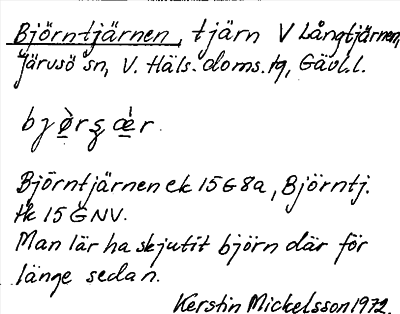 Björntjärnen, tjärn V Långtjärnen,
Järvsö sn, V. Häls. doms. tg, Gävl. l.
Björntjärnen ek 15G8a, Björntj.
tk 15 GNV.
Man lär ha skjutit björn där för
länge sedan.
Kerstin Mickelsson 1972.